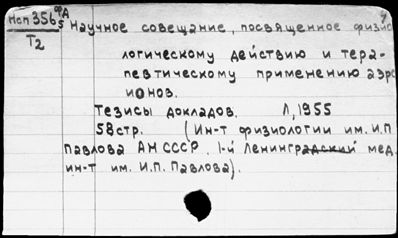 Исп 356 ФА 5 Научное совещание, посвященное физио
Т2
логическому действию и тера-
певтическому применению аэро
ионов.
Тезисы докладов. Л, 1955
58стр. (Ин-т физиологии им. И.П
Павлова АН СССР. 1-й Ленинградский мед.
ин-т им. И.П. Павлова).